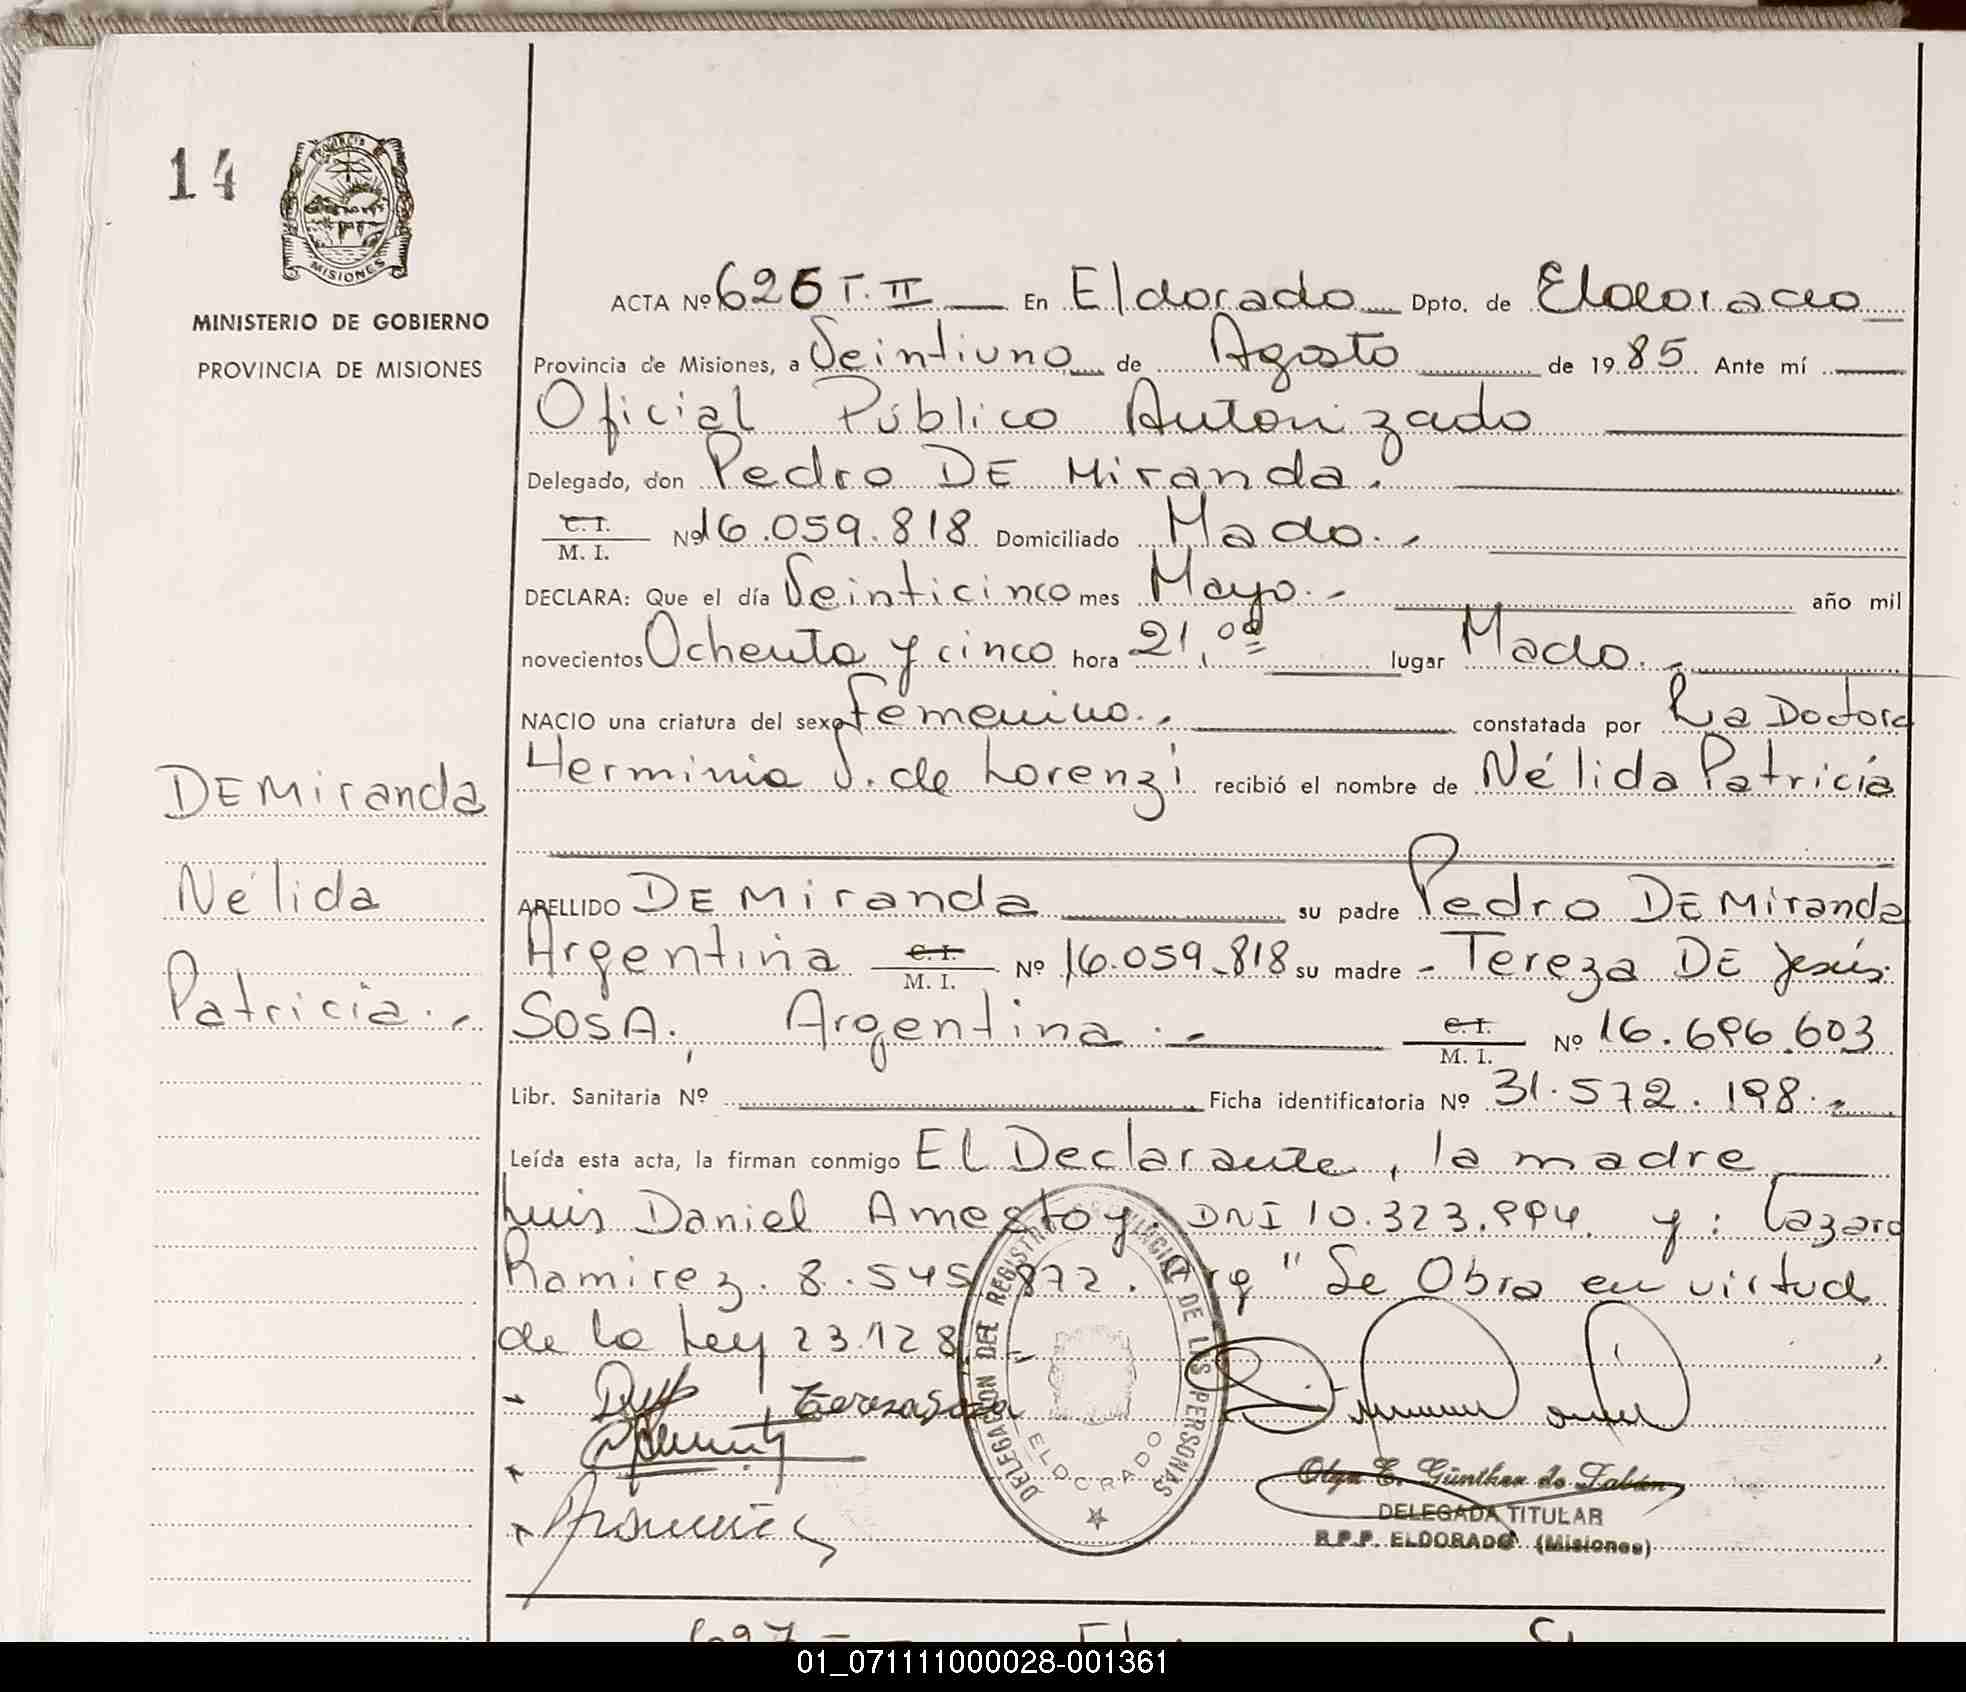 14
PROVINCIA DE
MISIONES
MINISTERIO DE GOBIERNO
PROVINCIA DE MISIONES
ACTA Nº 626 T. II En Eldorado Dpto. de Eldorado
Provincia de Misiones, a Veintiuno de Agosto de 1985 Ante mí
Oficial Público Autorizado
Delegado, don Pedro DE Miranda.
C. I.
M. I. Nº 16.059.818 Domiciliado Mado.-
DECLARA: Que el día Veinticinco mes Mayo.- año mil
novecientos Ochenta y cinco hora 21,00 lugar Mado.-
NACIO una criatura del sexo Femenino.- constatada por La Doctora
Herminia S. de Lorenzi recibió el nombre de Nélida Patricia
APELLIDO DE Miranda su padre Pedro DE Miranda
Argentina C. I. M. I. Nº 16.059.818 su madre - Tereza DE Jesús
SOSA., Argentina.- C. I. M. I. Nº 16.696.603
Libr. Sanitaria Nº Ficha identificatoria Nº 31.572.198.-
Leída esta acta, la firman conmigo El Declarante, la madre
Luis Daniel Amestoy. DNI 10.323.994. y: Lazaro
Ramirez. 8.545.872. "Se Obra en virtud
de la Ley 23.128.-
DE Miranda
Nélida
Patricia.-
Tereza Sosa
DELEGACION DEL REGISTRO PROVINCIAL DE LAS PERSONAS
ELDORADO
Olga E. Günther de Fabán
DELEGADA TITULAR
R.P.P. ELDORADO (Misiones)
01_071111000028-001361